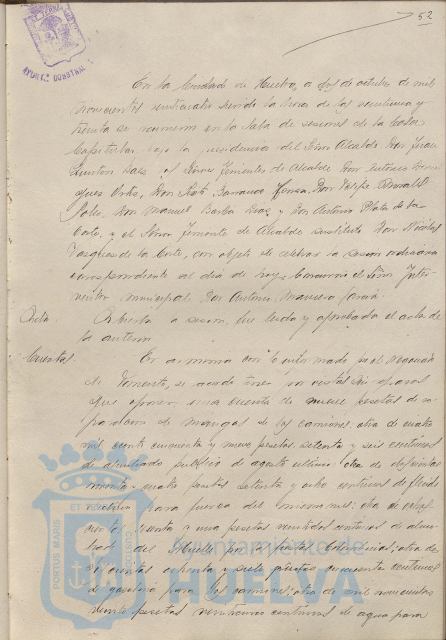 52
AYUNT.º CONSTNAL.
En la Ciudad de Huelva, a dos de octubre de mil
novecientos veinticuatro siendo la hora de las veintiuna y
treinta se reunieron en la Sala de sesiones de la Casa
Capitular, bajo la presidencia del Señor Alcalde Don Juan
Quintero los Señores Tenientes de Alcalde Don Antonio
Ortiz, Don José Barranco Don Felipe Morales
Don Manuel Barba y Don Antonio Plata de la
Corte, y el Señor Teniente de Alcalde sustituto Don Nicolás
Vazquez de la Corte, con objeto de celebrar la sesion ordinaria
correspondiente al dia de hoy. Concurrió el Señor Inter-
ventor municipal Don Antonio
Acta. Abierta la sesion, fue leida y aprobada el acta de
la anterior.
Cuentas. En armonia con lo informado por el Negociado
de Fomento, se acordó
que aprobar una cuenta de nueve pesetas de re-
paracion de mangas de los camiones; otra de cuatro
mil ciento cincuenta y nueve pesetas setenta y seis centimos
de alumbrado publico de agosto ultimo; otra de
cuatro pesetas setenta y ocho centimos de fluido
para fuerza del mismo mes; otra de
y una pesetas veintidos centimos de alum-
brado del Muelle otra de
ochenta y siete pesetas cincuenta centimos
de gasolina para los camiones; otra de mil novecientas
veinte pesetas centimos de agua para
PORTUS MARIS ET TERRAE CUSTODIA
Ayuntamiento de
HUELVA